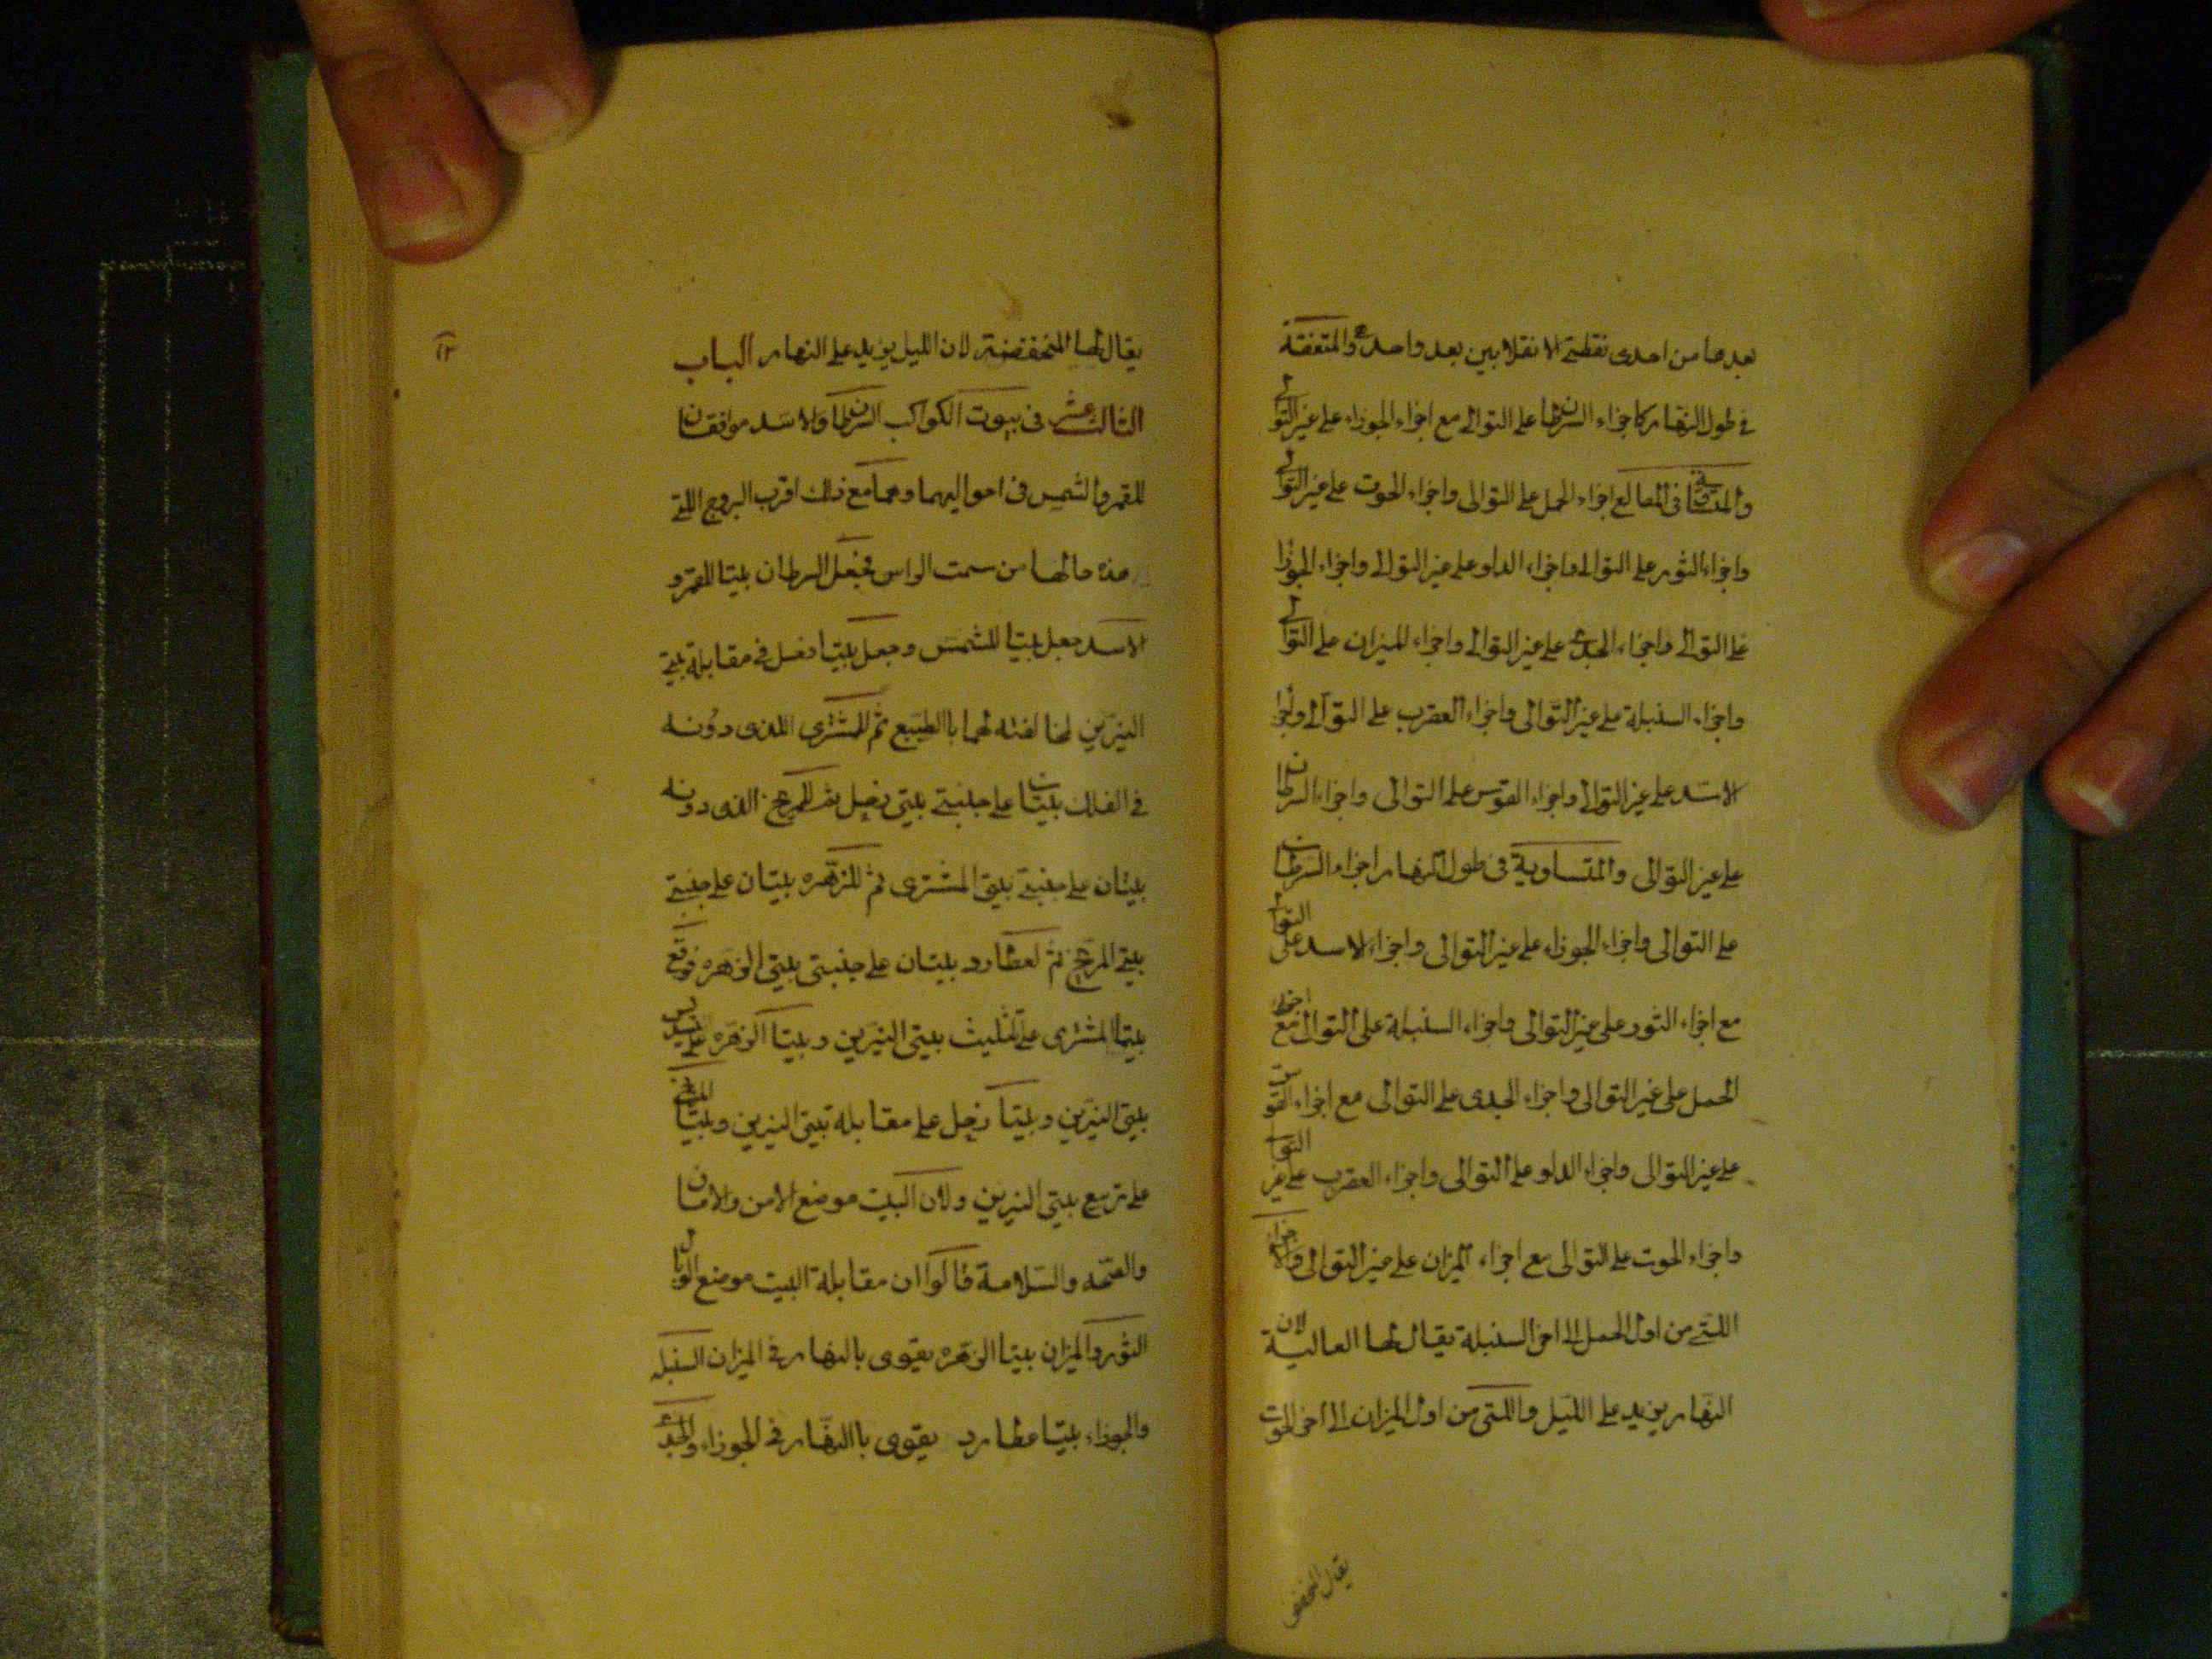 بعدها من احدى نقطتى الانقلابين بعد واحد والمتفقة
فى طول النهار كاجزاء السرطان على التوالى مع اجزاء الجوزاء على غير التوالى
والمتفقة فى المطالع اجزاء الحمل على التوالى واجزاء الحوت على غير التوالى
واجزاء الثور على التوالى واجزاء الدلو على غير التوالى واجزاء الجوزا
على التوالى واجزاء الجدى على غير التوالى واجزاء الميزان على التوالى
واجزاء السنبلة على غير التوالى واجزاء العقرب على التوالى واجزا
الاسد على غير التوالى واجزاء القوس على التوالى واجزاء السرطان
على غير التوالى والمتساوية فى طول النهار اجزاء السرطان
على التوالى واجزاء الجوزاء على غير التوالى واجزاء الاسد على التوالى
مع اجزاء الثور على غير التوالى واجزاء السنبلة على التوالى مع اجزاء
الحمل على غير التوالى واجزاء الجدى على التوالى مع اجزاء القوس
على غير التوالى واجزاء الدلو على التوالى واجزاء العقرب على غير التوالى
واجزاء الحوت على التوالى مع اجزاء الميزان على غير التوالى والاجزاء
اللتى من اول الحمل الى اخر السنبلة يقال لها العالية لان
النهار يزيد على الليل واللتى من اول الميزان الى اخر الحوت
يقال المنخفض
١٢
يقال لها المنخفضة لان الليل يزيد على النهار الباب
الثالث عشر فى بيوت الكواكب السرطان والاسد موافقان
للقمر والشمس فى احواليهما وهما مع ذلك اقرب البروج اللتى
هذه حالها من سمت الراس فجعل السرطان بيتا للقمر و
الاسد جعل بيتا للشمس وجعل بيتا زحل فى مقابلة بيتى
النيرين لمخالفته لهما بالطبع ثم للمشترى اللذى دونه
فى الفلك بيتان على جنبتى بيتى زحل ثم للمريخ الذى دونه
بيتان على جنبتى بيتى المشترى ثم للزهره بيتان على جنبتى
بيتى المريخ ثم لعطارد بيتان على جنبتى بيتى الزهره فوقع
بيتا المشترى على تثليث بيتى النيرين وبيتا الزهره على تسديس
بيتى النيرين وبيتا زحل على مقابلة بيتى النيرين وبيتا المريخ
على تربيع بيتى النيرين ولان البيت موضع الامن والامان
والصحه والسلامة قالوا ان مقابلة البيت موضع الوبال
الثور والميزان بيتا الزهره يقوى بالنهار فى الميزان السنبله
والجوزاء بيتا عطارد يقوى باالنهار فى الجوزاء والجدى